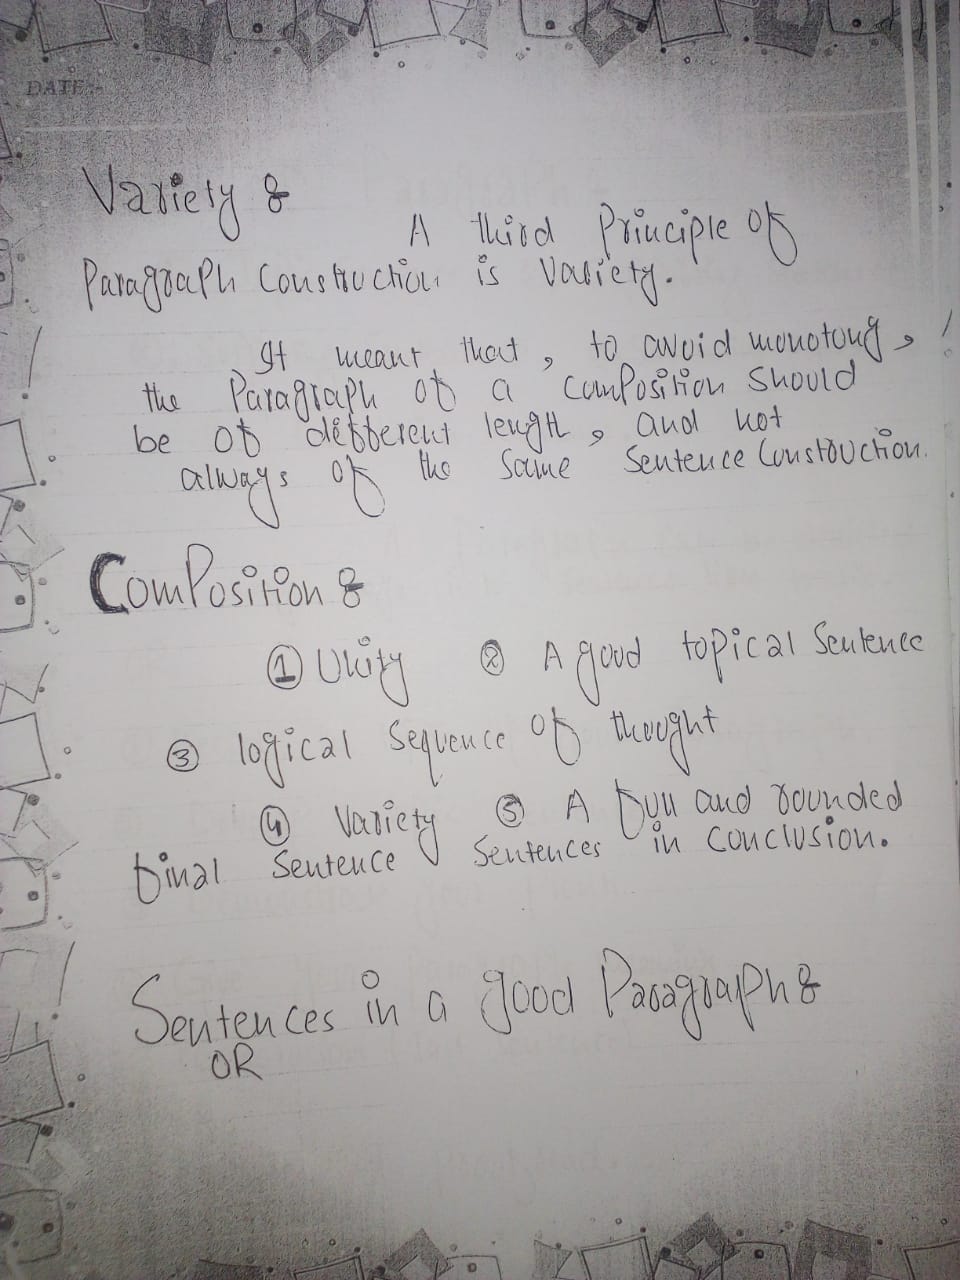 DATE:-
Variety :
A third Principle of
Paragraph Construction is Variety.
It meant that, to avoid monotony,
the Paragraph of a composition should
be of different length, and not
always of the same Sentence Construction.
Composition :
① Unity ② A good topical Sentence
③ logical Sequence of thought
④ Variety ⑤ A full and rounded
final Sentence Sentences in conclusion.
Sentences in a good Paragraph :
OR